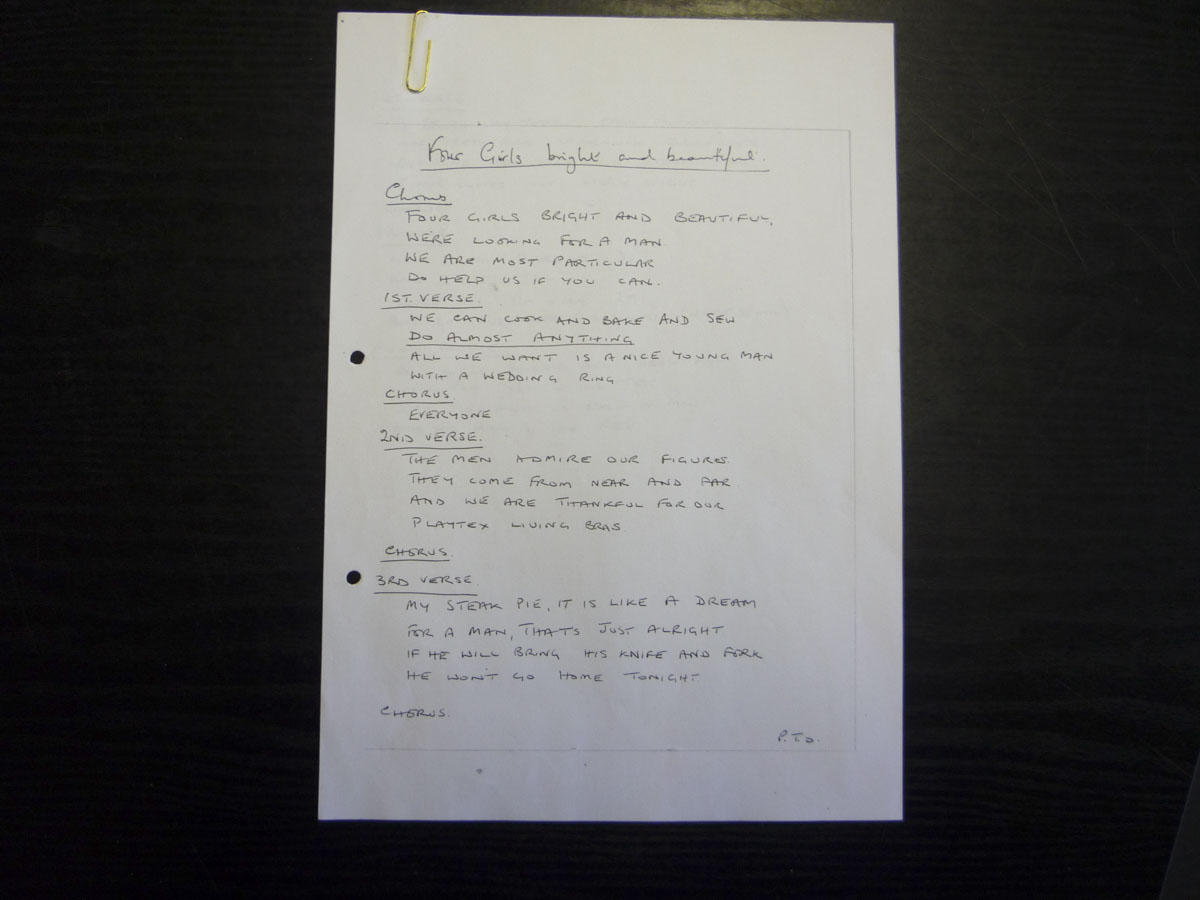 Four Girls bright and beautiful.
Chorus
FOUR GIRLS BRIGHT AND BEAUTIFUL,
WE'RE LOOKING FOR A MAN
WE ARE MOST PARTICULAR
DO HELP US IF YOU CAN.
1ST. VERSE.
WE CAN COOK AND BAKE AND SEW
DO ALMOST ANYTHING
ALL WE WANT IS A NICE YOUNG MAN
WITH A WEDDING RING
CHORUS.
EVERYONE
2ND VERSE.
THE MEN ADMIRE OUR FIGURES.
THEY COME FROM NEAR AND FAR
AND WE ARE THANKFUL FOR OUR
PLAYTEX LIVING BRAS.
CHORUS.
3RD VERSE.
MY STEAK PIE, IT IS LIKE A DREAM
FOR A MAN, THAT'S JUST ALRIGHT
IF HE WILL BRING HIS KNIFE AND FORK
HE WON'T GO HOME TONIGHT.
CHORUS.
P.T.O.